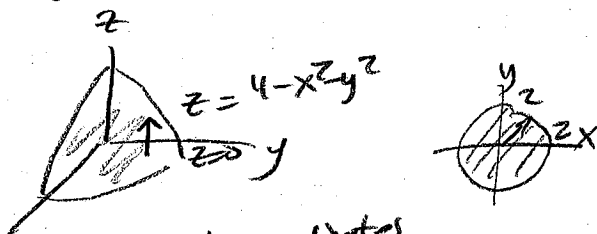 z
z = 4-x²-y²
z=0
y
y
2
2
x